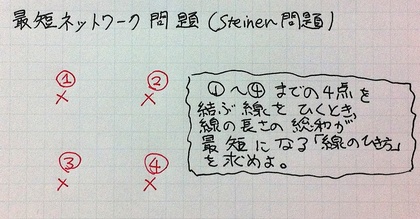 最短ネットワーク問題(Steiner問題)
① ②
× ×
③ ④
× ×
①〜④までの4点を
結ぶ線をひくとき,
線の長さの総和が,
最短になる「線のひき方」
を求めよ。